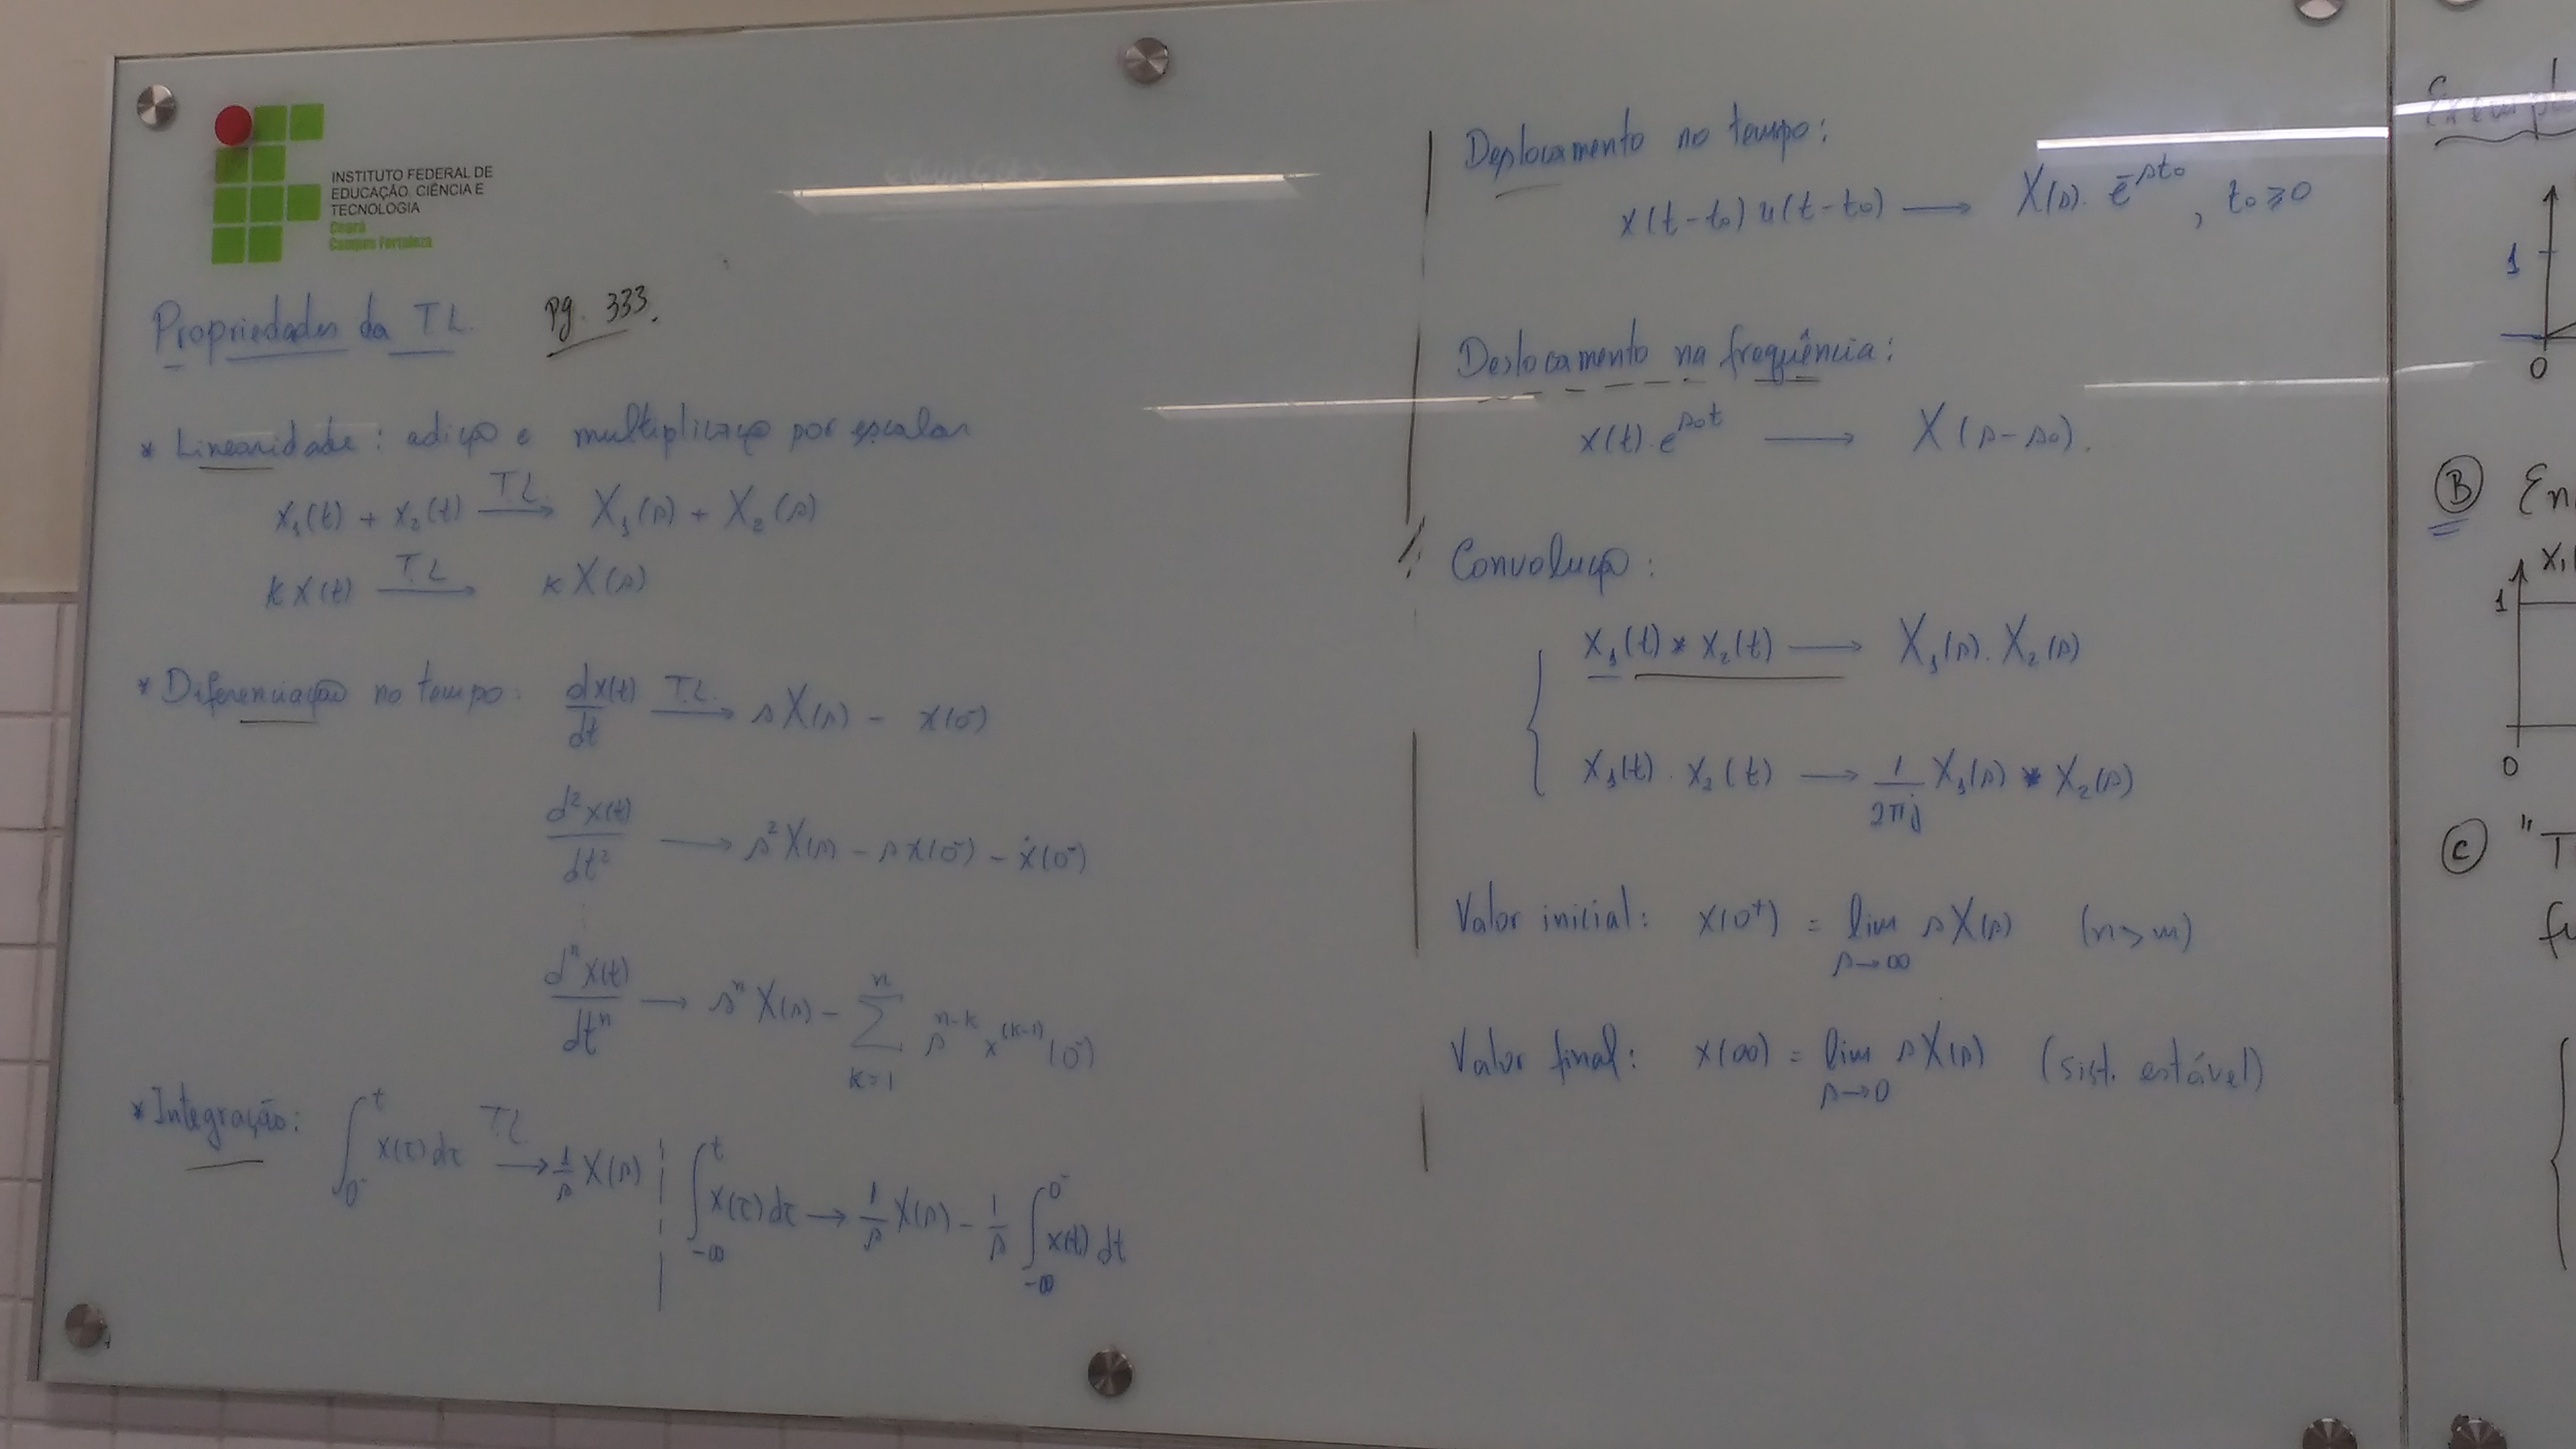 INSTITUTO FEDERAL DE
EDUCAÇÃO, CIÊNCIA E
TECNOLOGIA
Ceará
Campus Fortaleza
Propriedades da TL. pg. 333.
* Linearidade: adição e multiplicação por escalar
x₁(t) + x₂(t) —TL→ X₁(s) + X₂(s)
k x(t) —TL→ k X(s)
* Diferenciação no tempo: dx(t)/dt —TL→ sX(s) - x(0⁻)
d²x(t)/dt² → s²X(s) - sx(0⁻) - ẋ(0⁻)
⋮
dⁿx(t)/dtⁿ → sⁿX(s) - ∑_{k=1}^{n} s^{n-k} x^{(k-1)}(0⁻)
* Integração: ∫_{0⁻}^{t} x(τ)dτ —TL→ 1/s X(s) | ∫_{-∞}^{t} x(τ)dτ → 1/s X(s) - 1/s ∫_{-∞}^{0⁻} x(t)dt
Deslocamento no tempo:
x(t-t₀)u(t-t₀) → X(s).e^{-st₀}, t₀ ≥ 0
Deslocamento na frequência:
x(t).e^{s₀t} → X(s-s₀).
Convolução:
x₁(t) * x₂(t) → X₁(s).X₂(s)
x₁(t).x₂(t) → 1/2πj X₁(s) * X₂(s)
Valor inicial: x(0⁺) = lim_{s→∞} sX(s) (n>m)
Valor final: x(∞) = lim_{s→0} sX(s) (sist. estável)
1
0
B
1
0
C